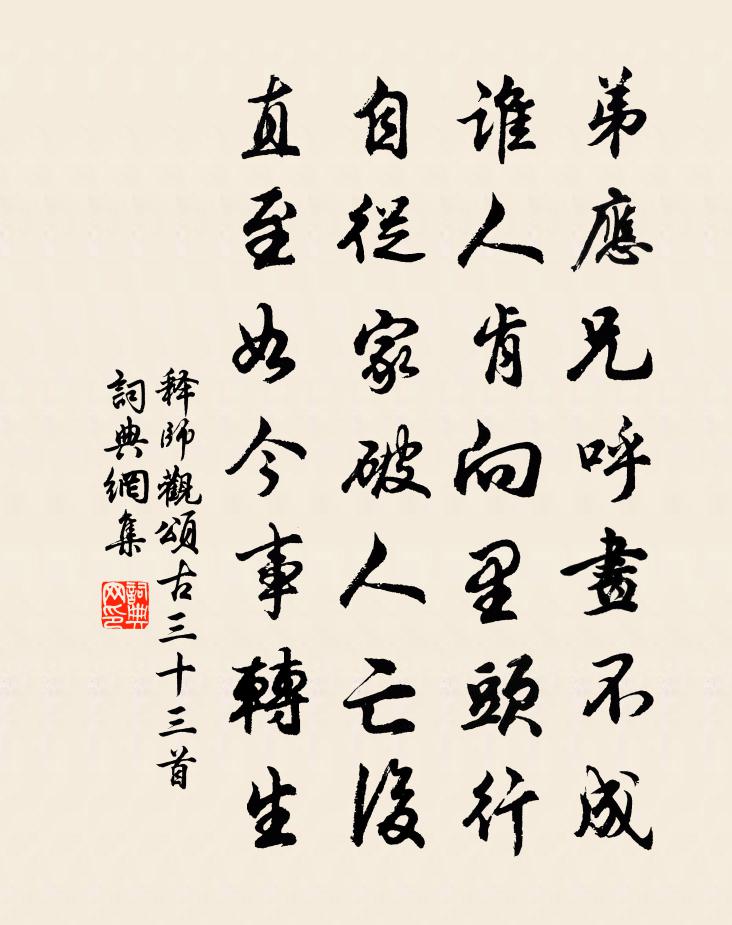 弟應兄呼畫不成
誰人肯向里頭行
自從家破人亡後
直至如今事轉生
释師觀頌古三十三首
詞典網集
詞典
网印